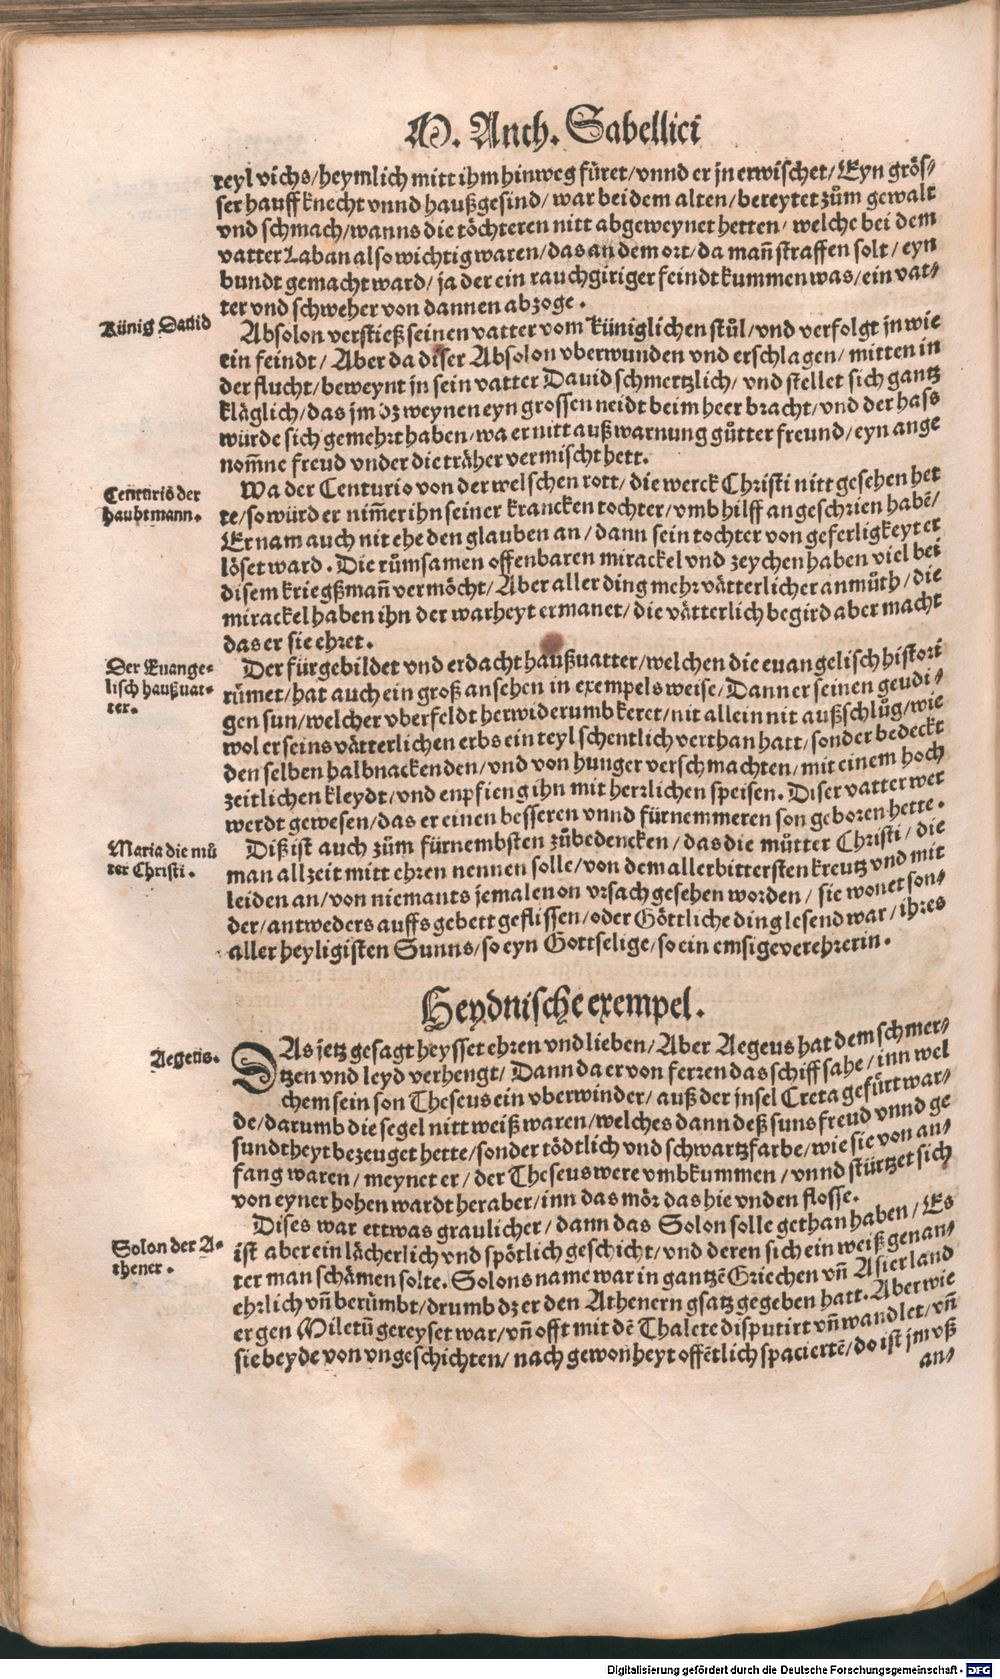 M. Anth. Sabellici
teyl vichs/heymlich mitt ihm hinweg füret/vnnd er jn erwischet/Eyn grös-
ser hauff knecht vnnd haußgesind/ war bei dem alten/ bereytet zům gewalt
vnd schmach/wanns die töchteren nitt abgeweynet hetten/ welche bei dem
vatter Laban also wichtig waren/das an dem ort/da mañ straffen solt/ eyn
bundt gemacht ward/ ja der ein rauchgiriger feindt kummen was/ein vat-
ter vnd schweher von dannen abzoge.
Künig Dauid
Absolon verstieß seinen vatter vom küniglichen stůl/vnd verfolgt jn wie
ein feindt/ Aber da diser Absolon vberwunden vnd erschlagen/ mitten in
der flucht/beweynt jn sein vatter Dauid schmertzlich/ vnd stellet sich gantz
kläglich/das jm dz weynen eyn grossen neidt beim heer bracht/vnd der hass
würde sich gemehrt haben/wa er nitt auß warnung gůtter freund/eyn ange
nom̃ne freud vnder die träher vermischt hett.
Centuriõ der
haubtmann.
Wa der Centurio von der welschen rott/ die werck Christi nitt gesehen het
te/so würd er nim̃er ihn seiner krancken tochter/vmb hilff angeschrien habẽ/
Er nam auch nit ehe den glauben an/dann sein tochter von geferligkeyt er
löset ward. Die růmsamen offenbaren mirackel vnd zeychen haben viel bei
disem kriegßmañ vermöcht/Aber aller ding mehr vätterlicher anmůth/die
mirackel haben ihn der warheyt ermanet/die vätterlich begird aber macht
das er sie ehret.
Der Euange-
lisch haußuat-
ter.
Der fürgebildet vnd erdacht haußuatter/welchen die euangelisch histori
rümet/hat auch ein groß ansehen in exempels weise/Dann er seinen geudi-
gen sun/welcher vber feldt herwiderumb keret/nit allein nit außschlůg/wie
wol er seins vätterlichen erbs ein teyl schentlich verthan hatt/sonder bedeckt
den selben halbnackenden/vnd von hunger verschmachten/mit einem hoch
zeitlichen kleydt/vnd enpfieng ihn mit herrlichen speisen. Diser vatter wer
werdt gewesen/das er einen besseren vnnd fürnemmeren son geboren hette.
Maria die mů
ter Christi.
Diß ist auch zům fürnembsten zůbedencken/das die můtter Christi/die
man allzeit mitt ehren nennen solle/von dem allerbittersten kreutz vnd mit
leiden an/von niemants jemalen on vrsach gesehen worden/ sie wonet son-
der/antweders auffs gebett geflissen/oder Göttliche ding lesend war/ihres
aller heyligisten Sunns/so eyn Gottselige/so ein emsige verehrerin.
Heydnische exempel.
Aegeus.
DAs jetz gesagt heysset ehren vnd lieben/Aber Aegeus hat dem schmer-
tzen vnd leyd verhengt/ Dann da er von ferren das schiff sahe/inn wel
chem sein son Theseus ein vberwinder/ auß der jnsel Creta gefürt war-
de/darumb die segel nitt weiß waren/welches dann deß suns freud vnnd ge
sundtheyt bezeuget hette/sonder tödtlich vnd schwartzfarbe/wie sie von an-
fang waren/ meynet er/der Theseus were vmbkummen/vnnd stürtzet sich
von eyner hohen wardt heraber/inn das mör das hie vnden flosse.
Solon der A-
thener.
Dises war ettwas graulicher/dann das Solon solle gethan haben/Es
ist aber ein lächerlich vnd spötlich geschicht/vnd deren sich ein weiß genan-
ter man schämen solte. Solons name war in gantzẽ Griechen vñ Asierland
ehrlich vñ berümbt/drumb dz er den Athenern gsatz gegeben hatt. Aber wie
er gen Miletũ gereyset war/vñ offt mit dẽ Thalete disputirt vñ wandlet/vñ
sie beyde von vngeschichten/ nach gewonheyt offẽtlich spaciertẽ/do ist jm vß
an-
Digitalisierung gefördert durch die Deutsche Forschungsgemeinschaft - DFG